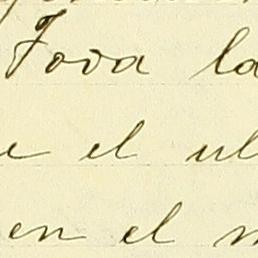 Tova la
e el ul
en el m